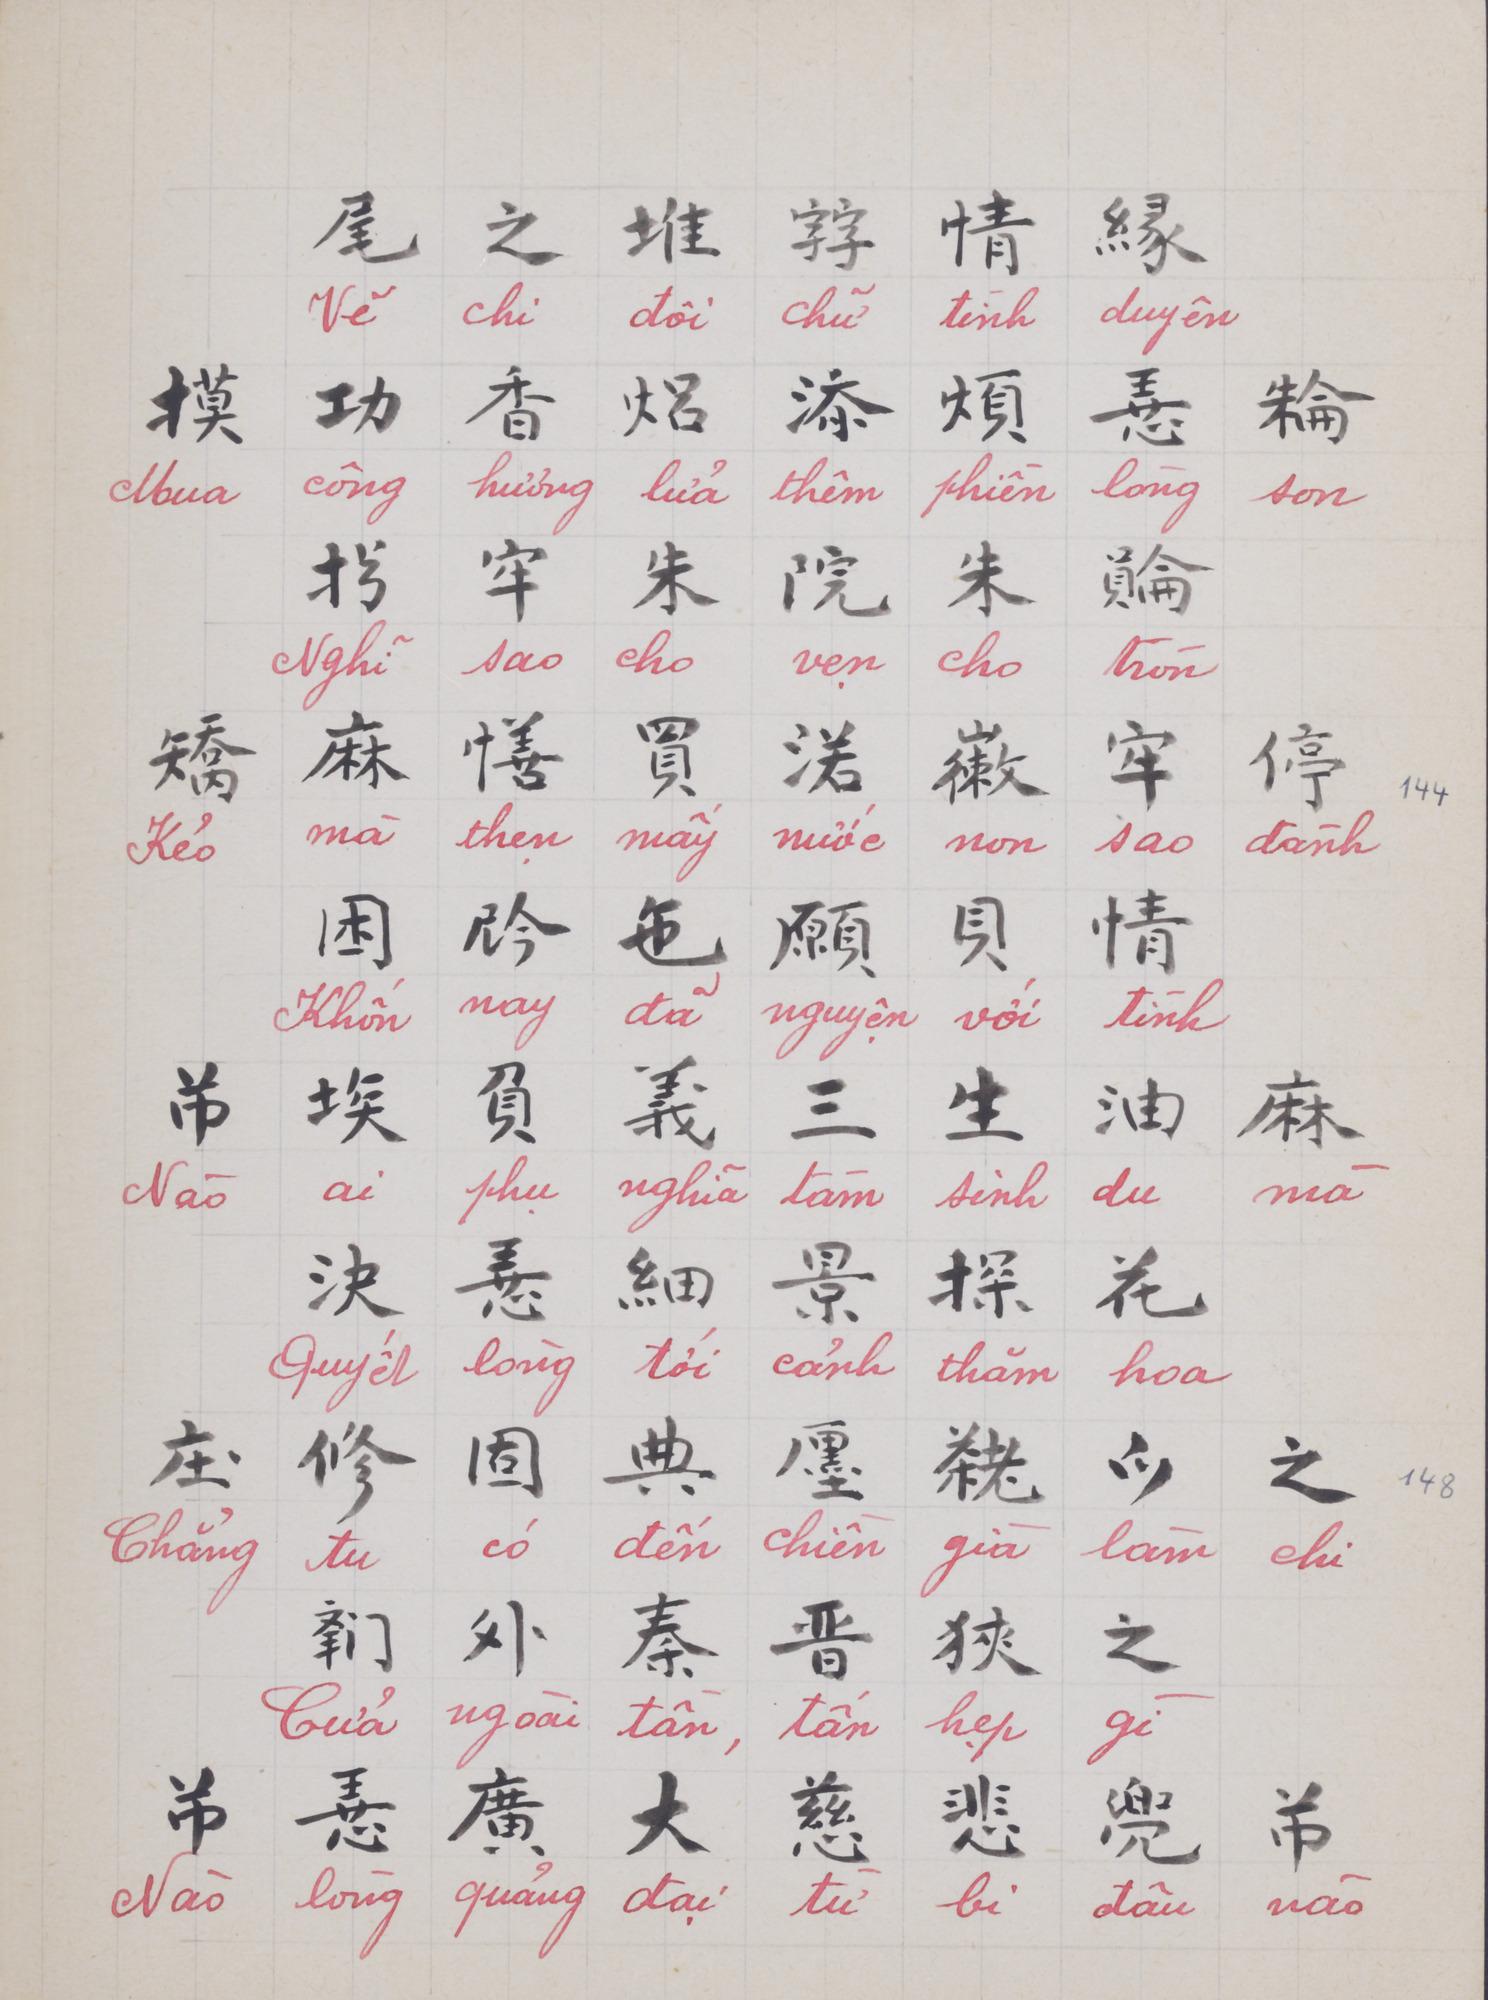 尾 之 堆 𡨸 情 緣
Vẽ chi đôi chữ tình duyên
摸 功 香 焒 添 煩 𢚸 𣘈
Mua công hương lửa thêm phiền lòng son
𢪀 牢 朱 院 朱 𧷺
Nghĩ sao cho vẹn cho tròn
矯 麻 𢢆 買 渃 𡽫 牢 停
Kẻo mà thẹn mấy nước non sao đành
144
困 𫢩 㐌 願 貝 情
Khốn nay đã nguyện với tình
𱜢 埃 負 義 三 生 油 麻
Nào ai phụ nghĩa tam sinh du mà
決 𢚸 細 景 探 花
Quyết lòng tới cảnh thăm hoa
庄 修 固 典 㕓 𦓅 𫜵 之
Chẳng tu có đến chiền già làm chi
148
𨷶 外 秦 晋 狹 之
Cửa ngoài tần, tấn hẹp gì
𱜢 𢚸 廣 大 慈 悲 兜 𱜢
Nào lòng quảng đại từ bi đâu nào